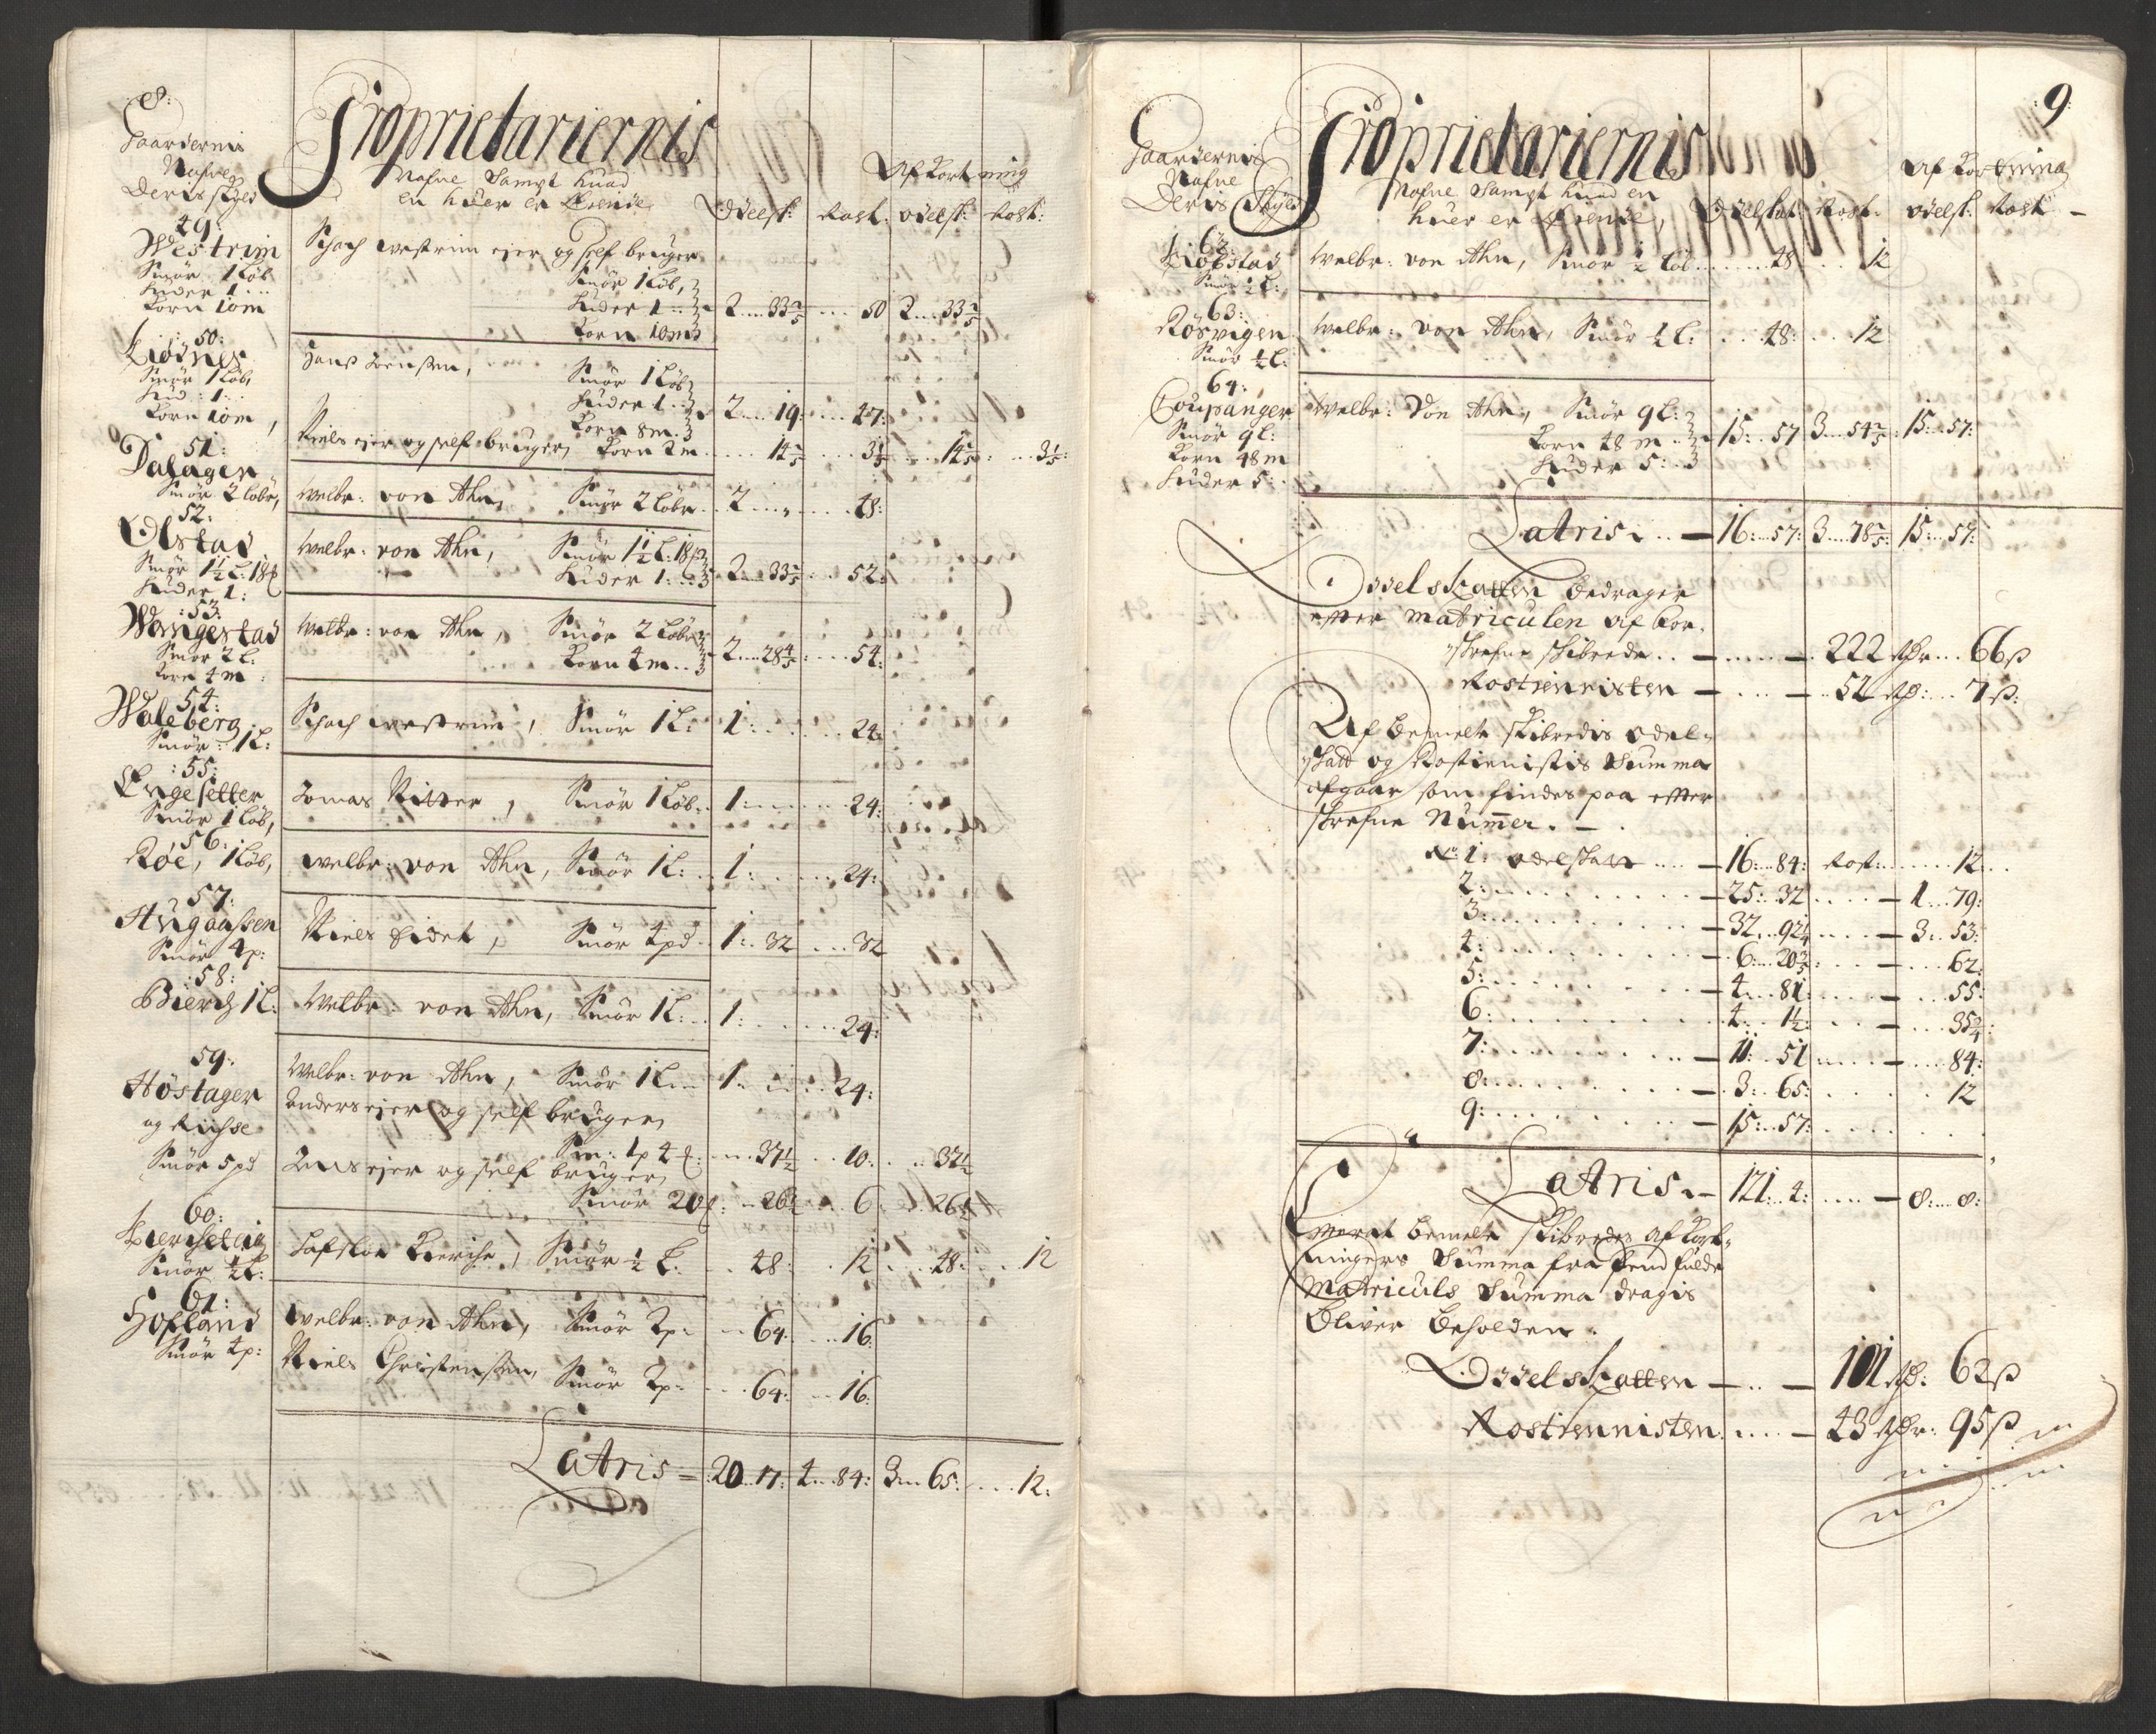 8:
Gaardernis
Nafne
Deris skyld
Proprietariernis
Nafne Sampt huad
en huer er Eiende
Odelsk: Rost:
Afkortning
odelsk: Rost:
49:
Westrim
Smör 1 Löb
Huder 1
Korn 10 m
Schach westrim ejer og self bruger
Smör 1 Löb,
Huder 1
Korn 10 m
2 33 3/5 50 2 33 3/5
50:
Smör 1 Löb,
Hud: 1:
Korn 10 m,
Smör 1 Löb
Huder 1
Korn 8 m
2 19: 47:
Niels ejer og self bruger, Korn 2 m 14 2/5 3 1/5 14 2/5: 3 1/5:
51:
Dalagen
Smör 2 löber,
Welbr: von Ahn, Smör 2 Löber 2 48:
52:
Olstad
Smör 1 1/2 L: 18
Huder 1:
Welbr: von Ahn, Smör 1 1/2 L: 18
Huder 1:
2 33 3/5 52:
53:
Wangestad
Smör 2 L:
Korn 4 m:
Welbr: von Ahn, Smör 2 Löber
Korn 4 m
2 28 4/5 54:
54:
Waleberg
Smör: 1 L:
Schach westrim, Smör 1 L: 1: 24:
55:
Engesetter
Smör 1 Löb,
Tomas Ritter, Smör 1 Löb: 1: 24:
56:
Röe, 1 Löb,
welbr: von Ahn, Smör 1 L: 1: 24:
57:
Hugaassen
Smör 4 p:
Niels Eidet, Smör 4 pd 1: 32 32
58:
Bierch 1 L:
Welbr: von Ahn, Smör 1 L: 1: 24:
59:
Höstagen
og Risse
Smör 5 pd
Welbr: von Ahn, Smör 1 L 1: 24:
Anders ejer og self bruger,
Sm: 1 p 4 37 1/2 10: 37 1/2
ejer og self bruger,
Smör 20 26 1/2 6 26 1/2
60:
Smör 1/2 L:
Kierche, Smör 1/2 L: 48: 12 48: 12
61:
Hofland
Smör 4 p:
Welbr: von Ahn, Smör 2 p: 64: 16:
Niels Christensen, Smör 2 p: 64: 16:
Latris = 20 17: 4 84: 3 65: 12:
9
Gaardernis
Nafne
Deris Skyld
Proprietariernis
Nafne Sampt huad en
huer er Eiende, Odelskat: Rost:
Afkortning
odelsk: Rost
62:
Smör 1/2 L:
Welbr: von Ahn, Smör 1/2 Löb 48 12
63:
Rösvigen
Smör 1/2 L:
Welbr: von Ahn, Smör 1/2 L: 48: 12
64:
Coupanger
Smör 9 L:
Korn 48 m
Huder 5:
Welbr: Von Ahn, Smör 9 L:
Korn 48 m
Huder 5:
15: 57 3 54 2/5: 15: 57:
Latris 16: 57: 3 78 2/5: 15: 57:
Odelskatten bedrager
efter matriculen af for:
skrefne skibrede 222 Rdr 66 ß
Rostienristen 52 Rd: 7 ß:
Af bemelte skibredis odel:
skatt og Rostienistis Summa
afgaar som findes paa efter
skrefne Numer.
No 1: odelskatt 16: 84: Rost: 12:
2: 25: 32 1 79:
3: 32 92 1/4 3 53:
4: 6: 20 3/5: 62:
5: 4 81: 55:
6: 4: 1 1/2: 35 3/4:
7: 11: 51 84:
8: 3: 65: 12
9: 15: 57:
Latris 121: 4: 8: 8:
bemelte skibredes afkort:
ningers Summa fra fulde
Matriculs Summa dragis
bliver beholden:
Odelskatten 101 Rd: 62 ß
Rostiennisten 43 Rdr: 95 ß